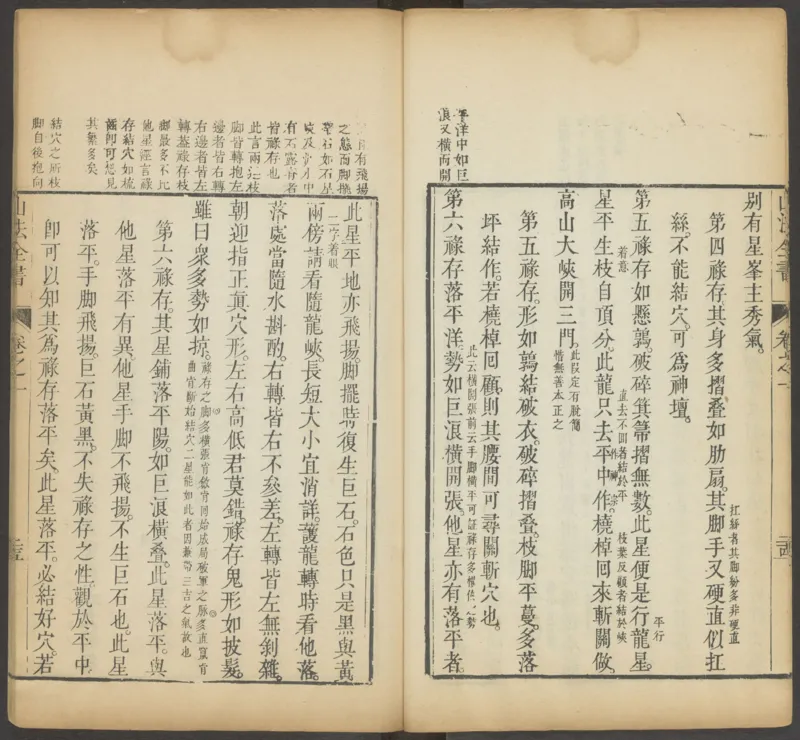 平洋中如巨
浪又橫而開
别有星峯主秀氣。
第四祿存其身多摺叠。如肋扇。其脚手又硬直似扛
扛絲者其脚紛多非硬直
絲。不能結穴。可爲神壇。
第五祿存如懸鶉。破碎箕箒摺無數。此星便是行龍星。
平行
若意
直去不回者結於平
枝葉反顧者結於峽
星平生枝自頂分。此龍只去平中作。橈棹回來斬關做。
高山大峽開三門。
此段定有訛簡
皆無善本正之
第五祿存。形如鶉結破衣。破碎摺叠。枝脚平蔓。多落
坪結作。若橈棹回顧。則其腰間可尋關斬穴也。
第六祿存落平洋。勢如巨浪橫開張。他星亦有落平者。
山法全書
卷之一
此星平地亦飛揚。脚擺時復生巨石。石色只是黑與黃。
二字着眼
兩傍請看隨龍峽。長短大小宜消詳。護龍轉時看他落。
落處當隨水斟酌。右轉皆右不參差。左轉皆左無剉雜。
朝迎指正眞穴形。左右高低君莫錯。祿存鬼形如披髮。
雖曰衆多勢如抗。
第六祿存。其星鋪落平陽。如巨浪橫叠。此星落平。與
他星落平有異。他星手脚不飛揚。不生巨石也。此星
落平。手脚飛揚。巨石黃黑。不失祿存之性。觀於平中
卽可以知其爲祿存落平矣。此星落平。必結好穴。若
有飛揚
之態而脚擺
皆祿存也
此言兩邊枝
脚皆轉抱左
邊者皆右轉
右邊者皆左
轉蓋祿存枝
脚最多不比
他星
存結穴如梳
其繁多矣
結穴之所枝
脚自後抱向
山法全書
卷之一